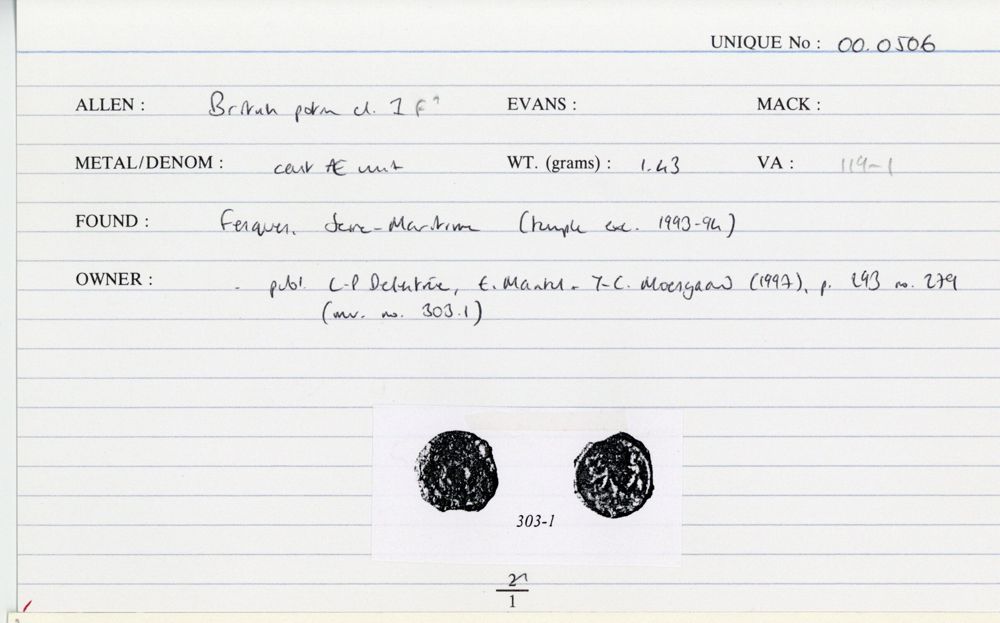 UNIQUE No : 00.0506
ALLEN : British potin cl. I F? EVANS : MACK :
METAL/DENOM : cast Æ unit WT. (grams) : 1.43 VA : 119-1
FOUND : Fesques, Seine-Maritime (temple exc. 1993-94)
OWNER : - publ. L-P Delestrée, E. Mantel + (1997), p. 293 no. 279
(inv. no. 303.1)
303-1
1